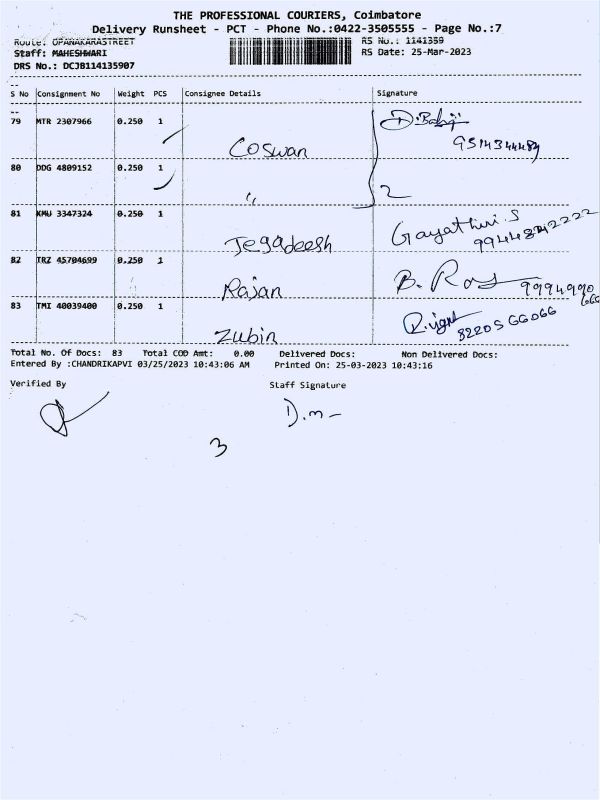 THE PROFESSIONAL COURIERS, Coimbatore
Delivery Runsheet - PCT - Phone No.:0422-3505555 - Page No.:7
Route: OPANAKARASTREET RS No.: 1141359
Staff: MAHESHWARI RS Date: 25-Mar-2023
DRS No.: DCJB114135907
S No Consignment No Weight PCS Consignee Details Signature
79 MTR 2307966 0.250 1 Coswan D. Balaji
9514344484
80 DDG 4809152 0.250 1 " 2
81 KMU 3347324 0.250 1 Jegadeesh Gayathiri.S
82 TRZ 45704699 0.250 1 Rajan B. Roy
9994990666
83 TMI 40039400 0.250 1 Zubin
3220566066
Total No. Of Docs: 83 Total COD Amt: 0.00 Delivered Docs: Non Delivered Docs:
Entered By :CHANDRIKAPVI 03/25/2023 10:43:06 AM Printed On: 25-03-2023 10:43:16
Verified By Staff Signature
D.m-
3